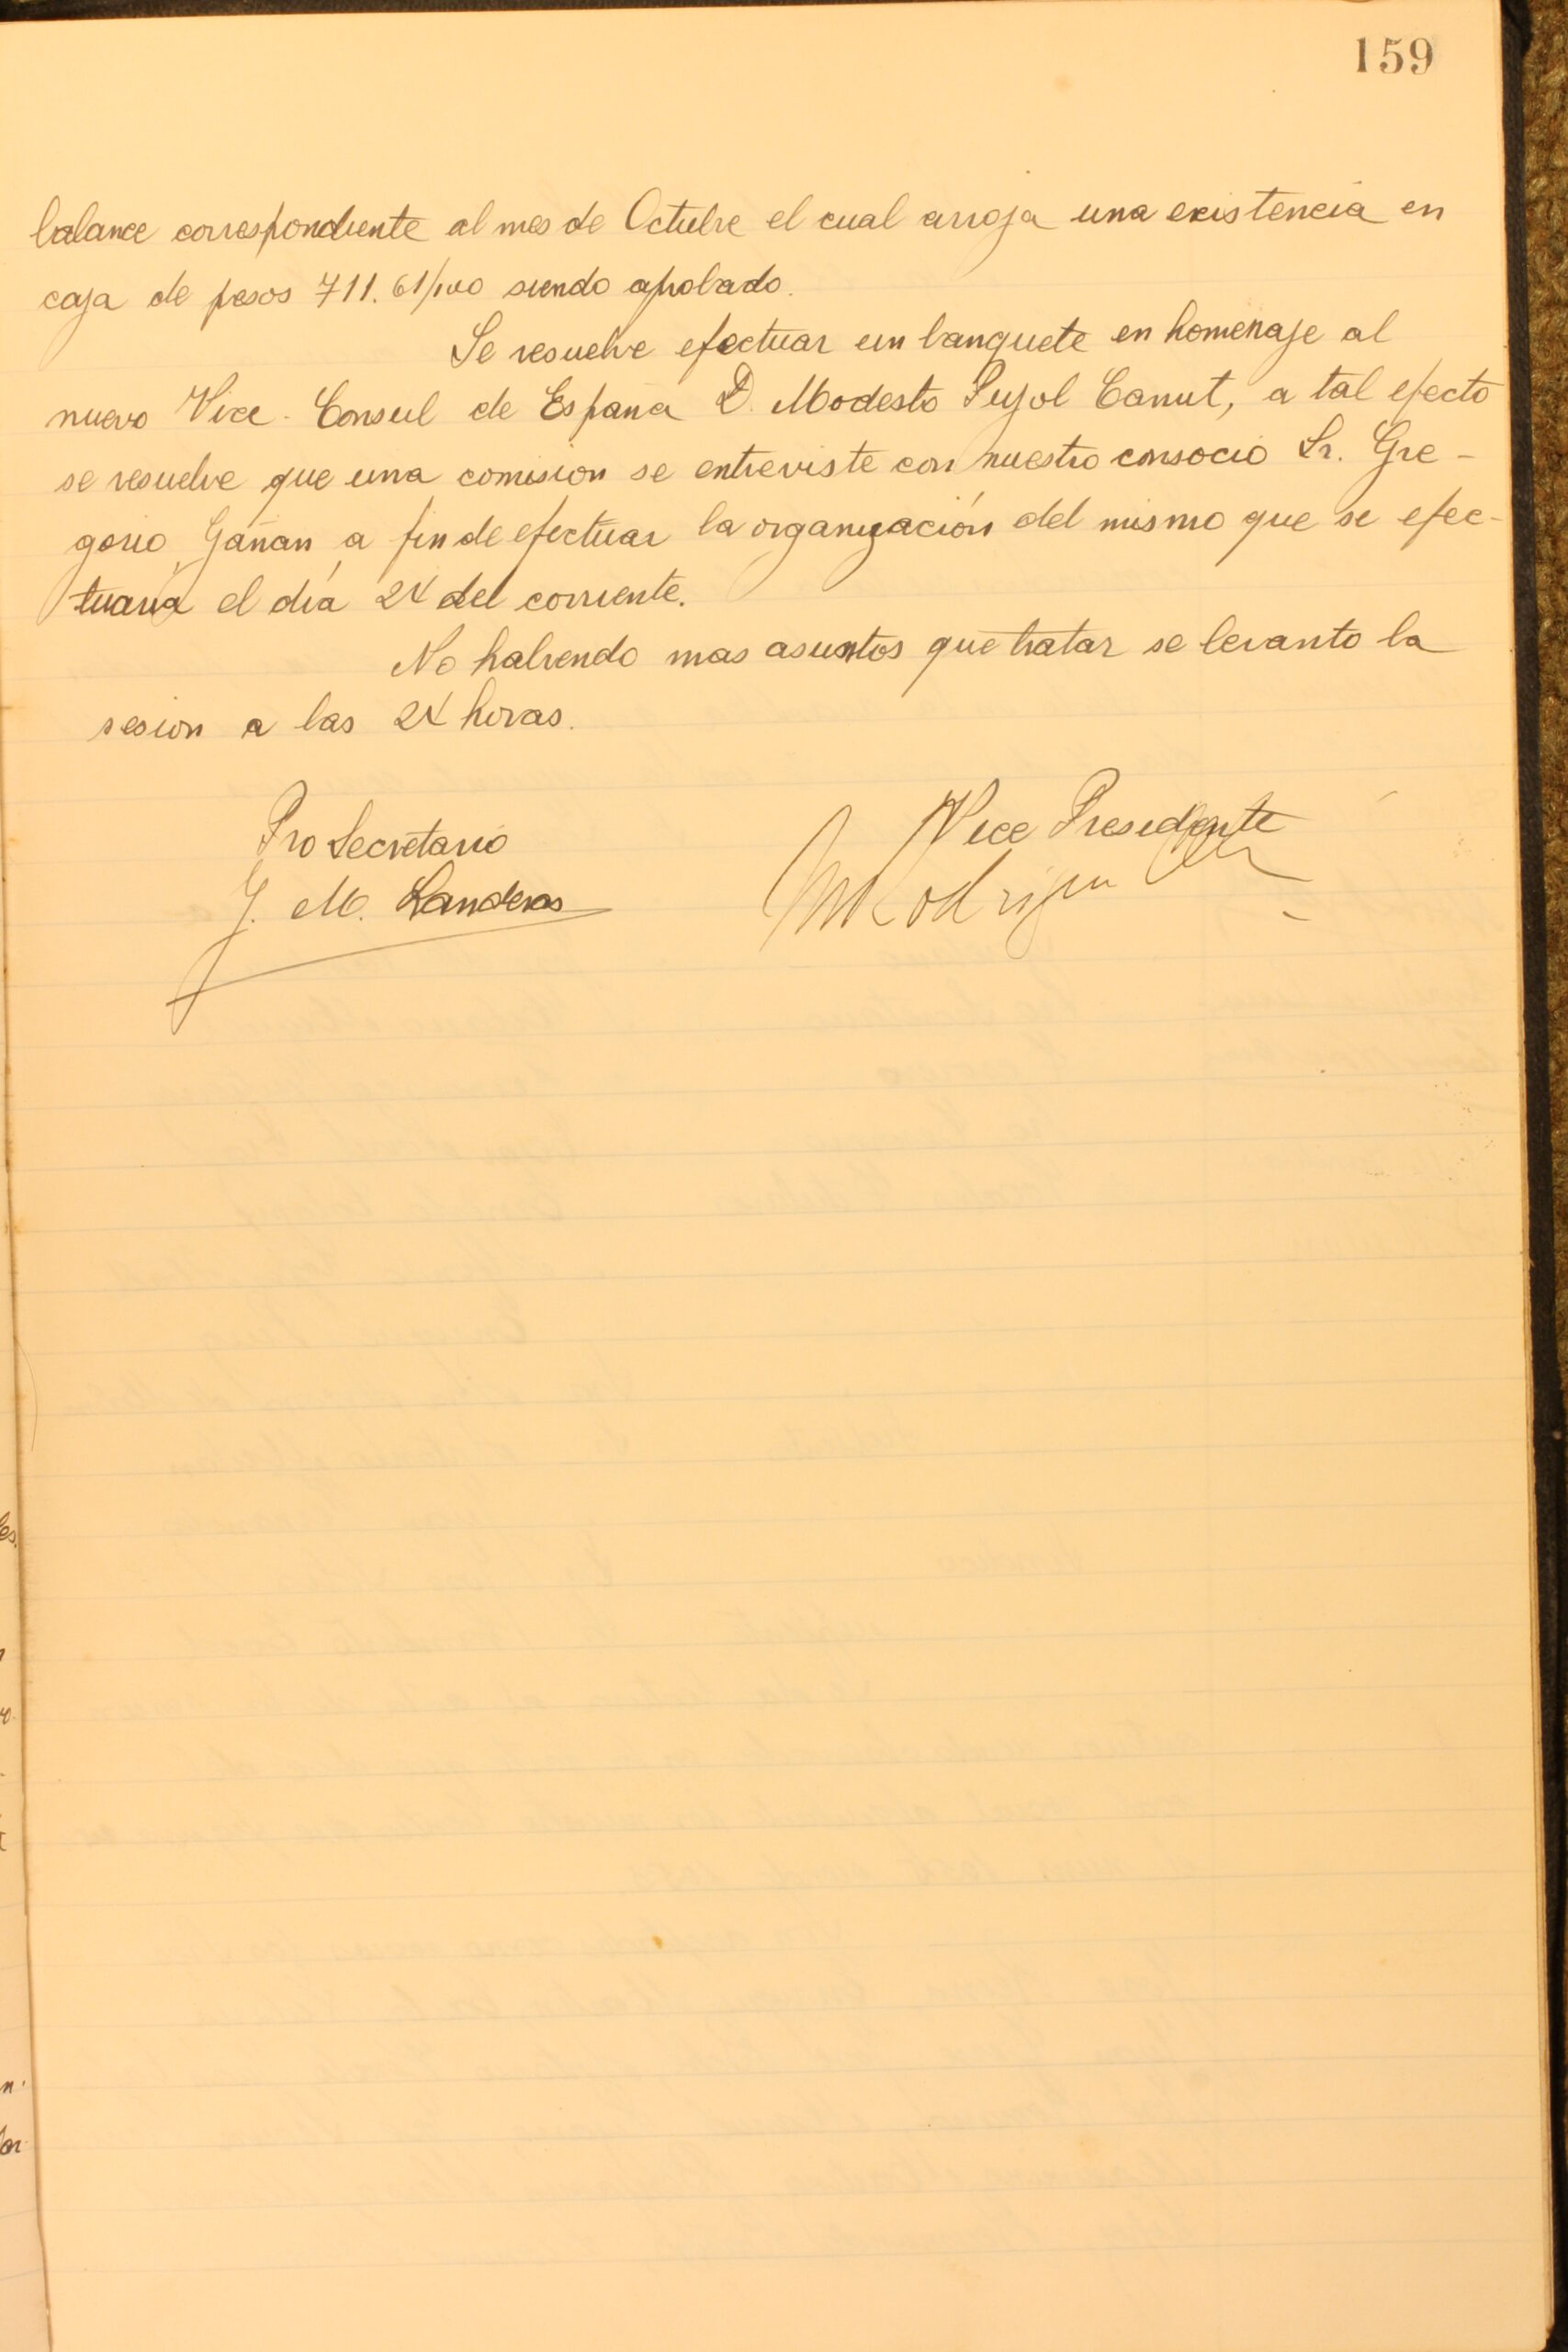 159
balance correspondiente al mes de Octubre el cual arroja una existencia en
caja de pesos 711.61/100 siendo aprobado.
Se resuelve efectuar un banquete en homenaje al
nuevo Vice-Consul de España D. Modesto Pujol Canut, a tal efecto
se resuelve que una comision se entreviste con nuestro consocio Sr. Gre-
gorio Gañan a fin de efectuar la organización del mismo que se efec-
tuaria el día 24 del corriente.
No habiendo mas asuntos que tratar se levanto la
sesion a las 24 horas.
Pro Secretario
Vice Presidente
J. M. Landeras